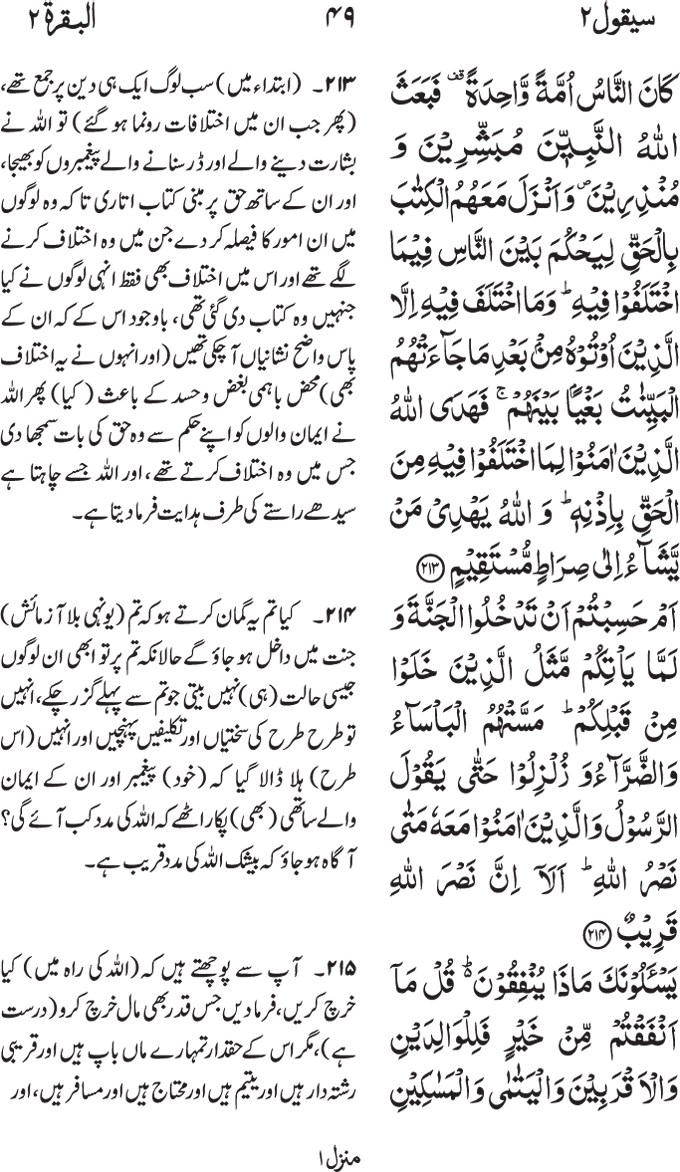 سیقول ۲
۴۹
البقرۃ ۲
كَانَ النَّاسُ اُمَّةً وَّاحِدَةً ۫ فَبَعَثَ
اللّٰهُ النَّبِیّٖنَ مُبَشِّرِیْنَ وَ
مُنْذِرِیْنَ ۪ وَ اَنْزَلَ مَعَهُمُ الْكِتٰبَ
بِالْحَقِّ لِیَحْكُمَ بَیْنَ النَّاسِ فِیْمَا
اخْتَلَفُوْا فِیْهِ ؕ وَ مَا اخْتَلَفَ فِیْهِ اِلَّا
الَّذِیْنَ اُوْتُوْهُ مِنْۢ بَعْدِ مَا جَآءَتْهُمُ
الْبَیِّنٰتُ بَغْیًۢا بَیْنَهُمْ ۚ فَهَدَی اللّٰهُ
الَّذِیْنَ اٰمَنُوْا لِمَا اخْتَلَفُوْا فِیْهِ مِنَ
الْحَقِّ بِاِذْنِهٖ ؕ وَ اللّٰهُ یَهْدِیْ مَنْ
یَّشَآءُ اِلٰی صِرَاطٍ مُّسْتَقِیْمٍ ﴿۲۱۳﴾
اَمْ حَسِبْتُمْ اَنْ تَدْخُلُوا الْجَنَّةَ وَ
لَمَّا یَاْتِكُمْ مَّثَلُ الَّذِیْنَ خَلَوْا
مِنْ قَبْلِكُمْ ؕ مَسَّتْهُمُ الْبَاْسَآءُ
وَ الضَّرَّآءُ وَ زُلْزِلُوْا حَتّٰی یَقُوْلَ
الرَّسُوْلُ وَ الَّذِیْنَ اٰمَنُوْا مَعَهٗ مَتٰی
نَصْرُ اللّٰهِ ؕ اَلَاۤ اِنَّ نَصْرَ اللّٰهِ
قَرِیْبٌ ﴿۲۱۴﴾
یَسْـَٔلُوْنَكَ مَا ذَا یُنْفِقُوْنَ ؕ۬ قُلْ مَاۤ
اَنْفَقْتُمْ مِّنْ خَیْرٍ فَلِلْوَالِدَیْنِ
وَ الْاَقْرَبِیْنَ وَ الْیَتٰمٰی وَ الْمَسٰكِیْنِ
۲۱۳۔ (ابتداء میں) سب لوگ ایک ہی دین پر جمع تھے،
(پھر جب ان میں اختلافات رونما ہو گئے) تو اللہ نے
بشارت دینے والے اور ڈر سنانے والے پیغمبروں کو بھیجا،
اور ان کے ساتھ حق پر مبنی کتاب اتاری تاکہ وہ لوگوں
میں ان امور کا فیصلہ کر دے جن میں وہ اختلاف کرنے
لگے تھے اور اس میں اختلاف بھی فقط انہی لوگوں نے کیا
جنہیں وہ کتاب دی گئی تھی، باوجود اس کے کہ ان کے
پاس واضح نشانیاں آ چکی تھیں (اور انہوں نے یہ اختلاف
بھی) محض باہمی بغض و حسد کے باعث (کیا) پھر اللہ
نے ایمان والوں کو اپنے حکم سے وہ حق کی بات سمجھا دی
جس میں وہ اختلاف کرتے تھے، اور اللہ جسے چاہتا ہے
سیدھے راستے کی طرف ہدایت فرما دیتا ہے۔
۲۱۴۔ کیا تم یہ گمان کرتے ہو کہ تم (یونہی بلا آزمائش)
جنت میں داخل ہو جاؤ گے حالانکہ تم پر تو ابھی ان لوگوں
جیسی حالت (ہی) نہیں بیتی جو تم سے پہلے گزر چکے، انہیں
تو طرح طرح کی سختیاں اور تکلیفیں پہنچیں اور انہیں (اس
طرح) ہلا ڈالا گیا کہ (خود) پیغمبر اور ان کے ایمان
والے ساتھی (بھی) پکار اٹھے کہ اللہ کی مدد کب آئے گی؟
آگاہ ہو جاؤ کہ بیشک اللہ کی مدد قریب ہے۔
۲۱۵۔ آپ سے پوچھتے ہیں کہ (اللہ کی راہ میں) کیا
خرچ کریں، فرما دیں جس قدر بھی مال خرچ کرو (درست
ہے)، مگر اس کے حقدار تمہارے ماں باپ ہیں اور قریبی
رشتہ دار ہیں اور یتیم ہیں اور محتاج ہیں اور مسافر ہیں، اور
منزل ۱